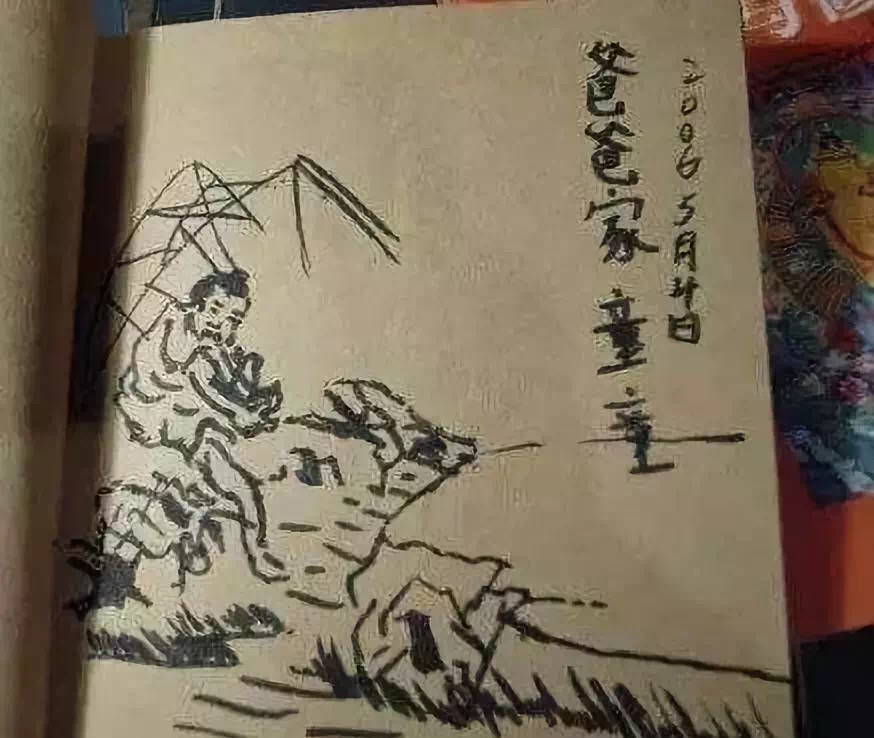 2006 5月廿日
爸爸家 童童